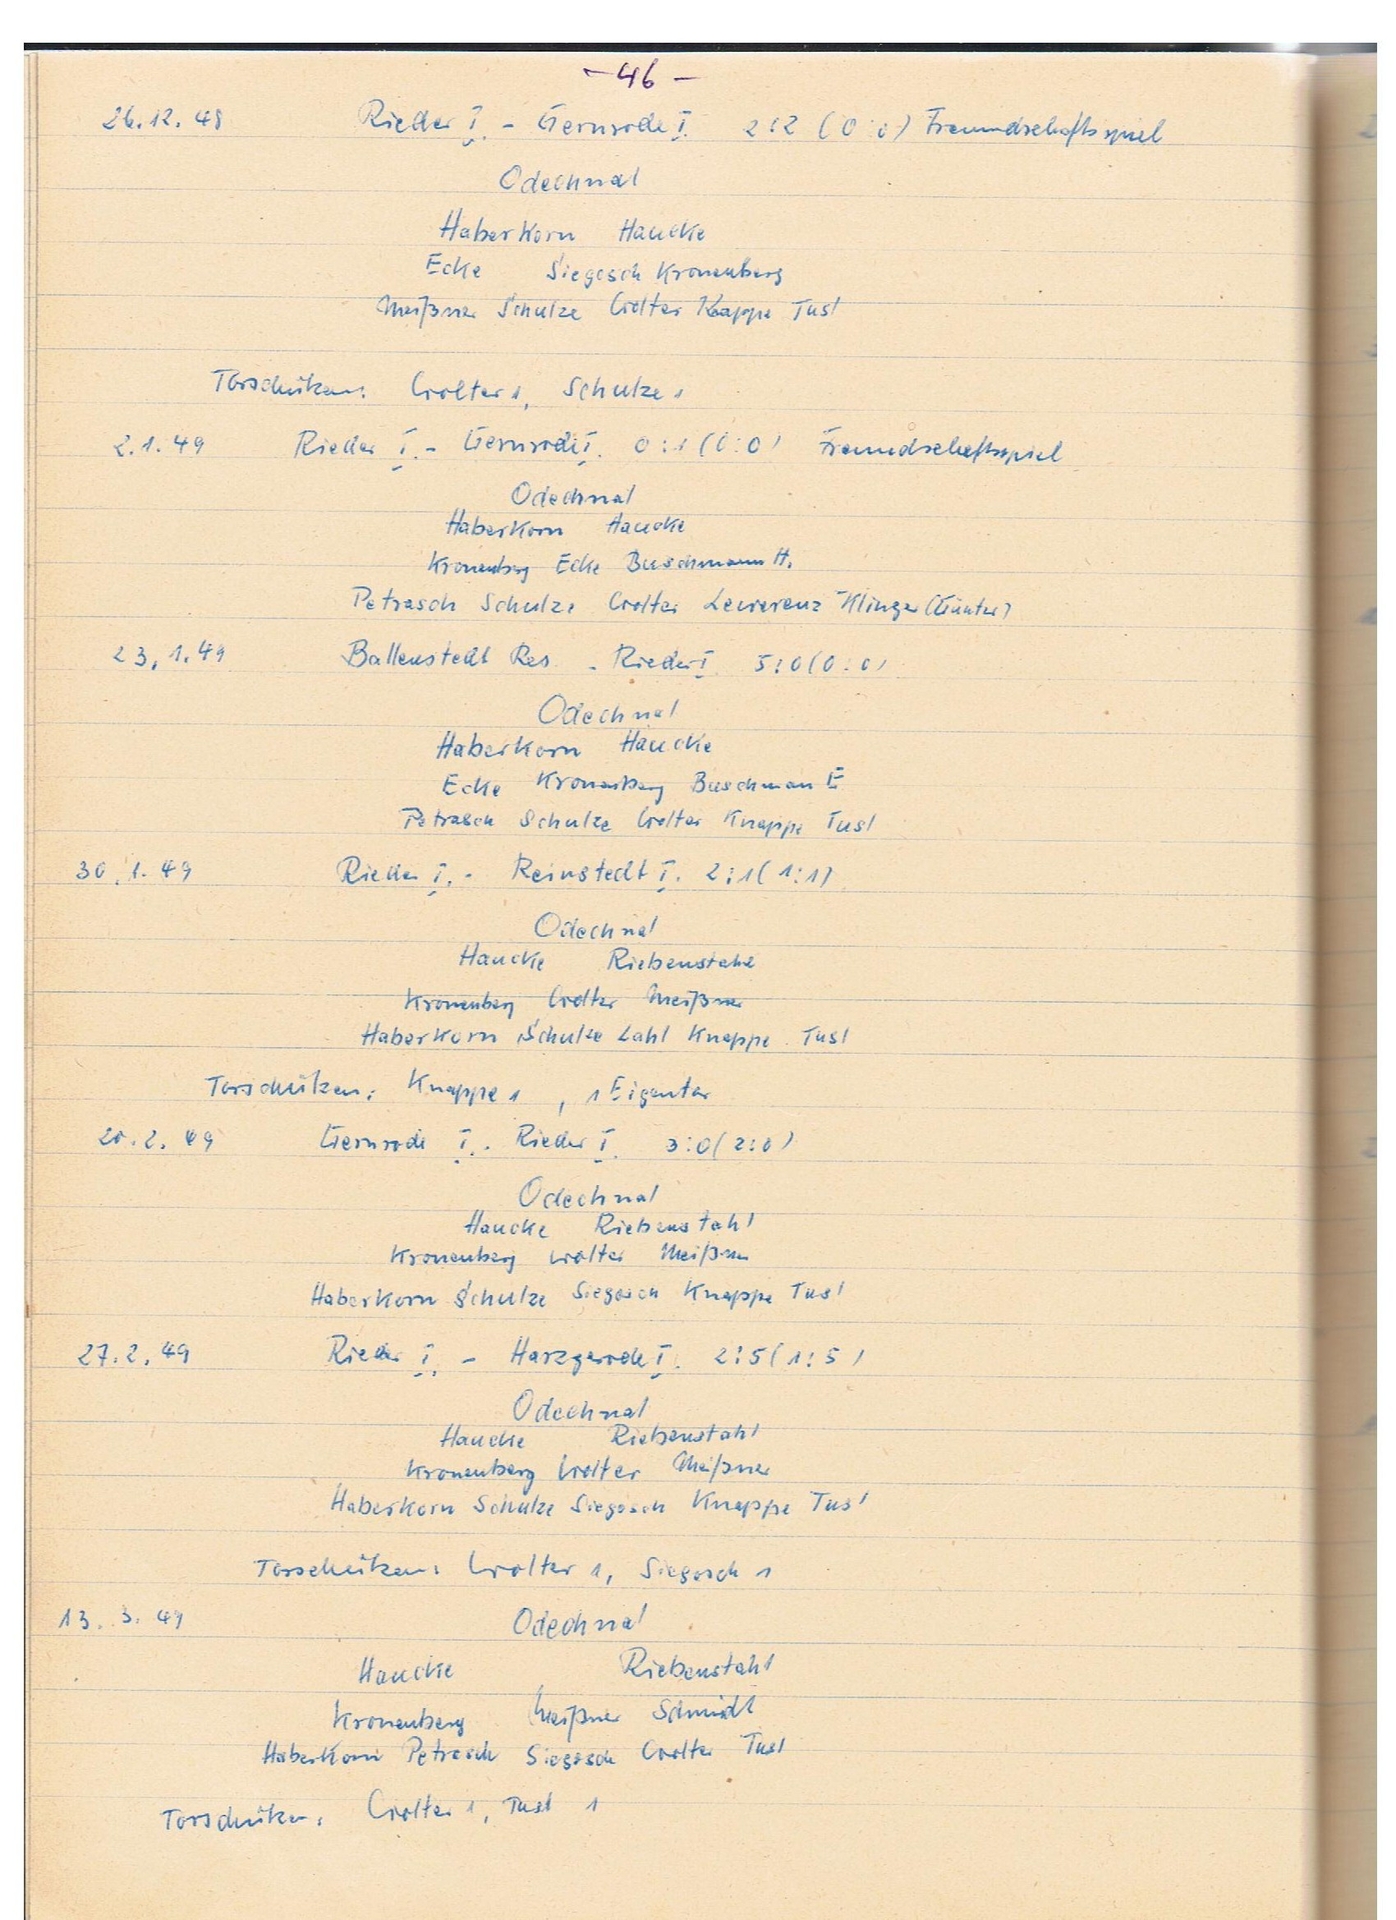 - 46 -
26.12.48 Rieder I. - Gernrode I. 2:2 (0:0) Freundschaftsspiel
Odechnal
Haberkorn Haucke
Ecke Siegosch Kronenberg
Meißner Schulze Wolter Knappe Tusl
Torschützen: Wolter 1, Schulze 1
2.1.49 Rieder I. - Gernrode I. 0:1 (0:0) Freundschaftsspiel
Odechnal
Haberkorn Haucke
Kronenberg Ecke Buschmann H.
Petrasch Schulze Wolter Lewerenz Klinger (Günter)
23.1.49 Ballenstedt Res. - Rieder I. 5:0 (0:0)
Odechnal
Haberkorn Haucke
Ecke Kronenberg Buschman E
Petrasch Schulze Wolter Knappe Tusl
30.1.49 Rieder I. - Reinstedt I. 2:1 (1:1)
Odechnal
Haucke Riebenstahl
Kronenberg Wolter Meißner
Haberkorn Schulze Lahl Knappe Tusl
Torschützen: Knappe 1, 1 Eigentor
20.2.49 Gernrode I. - Rieder I. 3:0 (2:0)
Odechnal
Haucke Riebenstahl
Kronenberg Wolter Meißner
Haberkorn Schulze Siegosch Knappe Tusl
27.2.49 Rieder I. - Harzgerode I. 2:5 (1:5)
Odechnal
Haucke Riebenstahl
Kronenberg Wolter Meißner
Haberkorn Schulze Siegosch Knappe Tusl
Torschützen: Wolter 1, Siegosch 1
13.3.49 Odechnal
Haucke Riebenstahl
Kronenberg Meißner Schmidt
Haberkorn Petrasch Siegosch Wolter Tusl
Torschützen: Wolter 1, Tusl 1